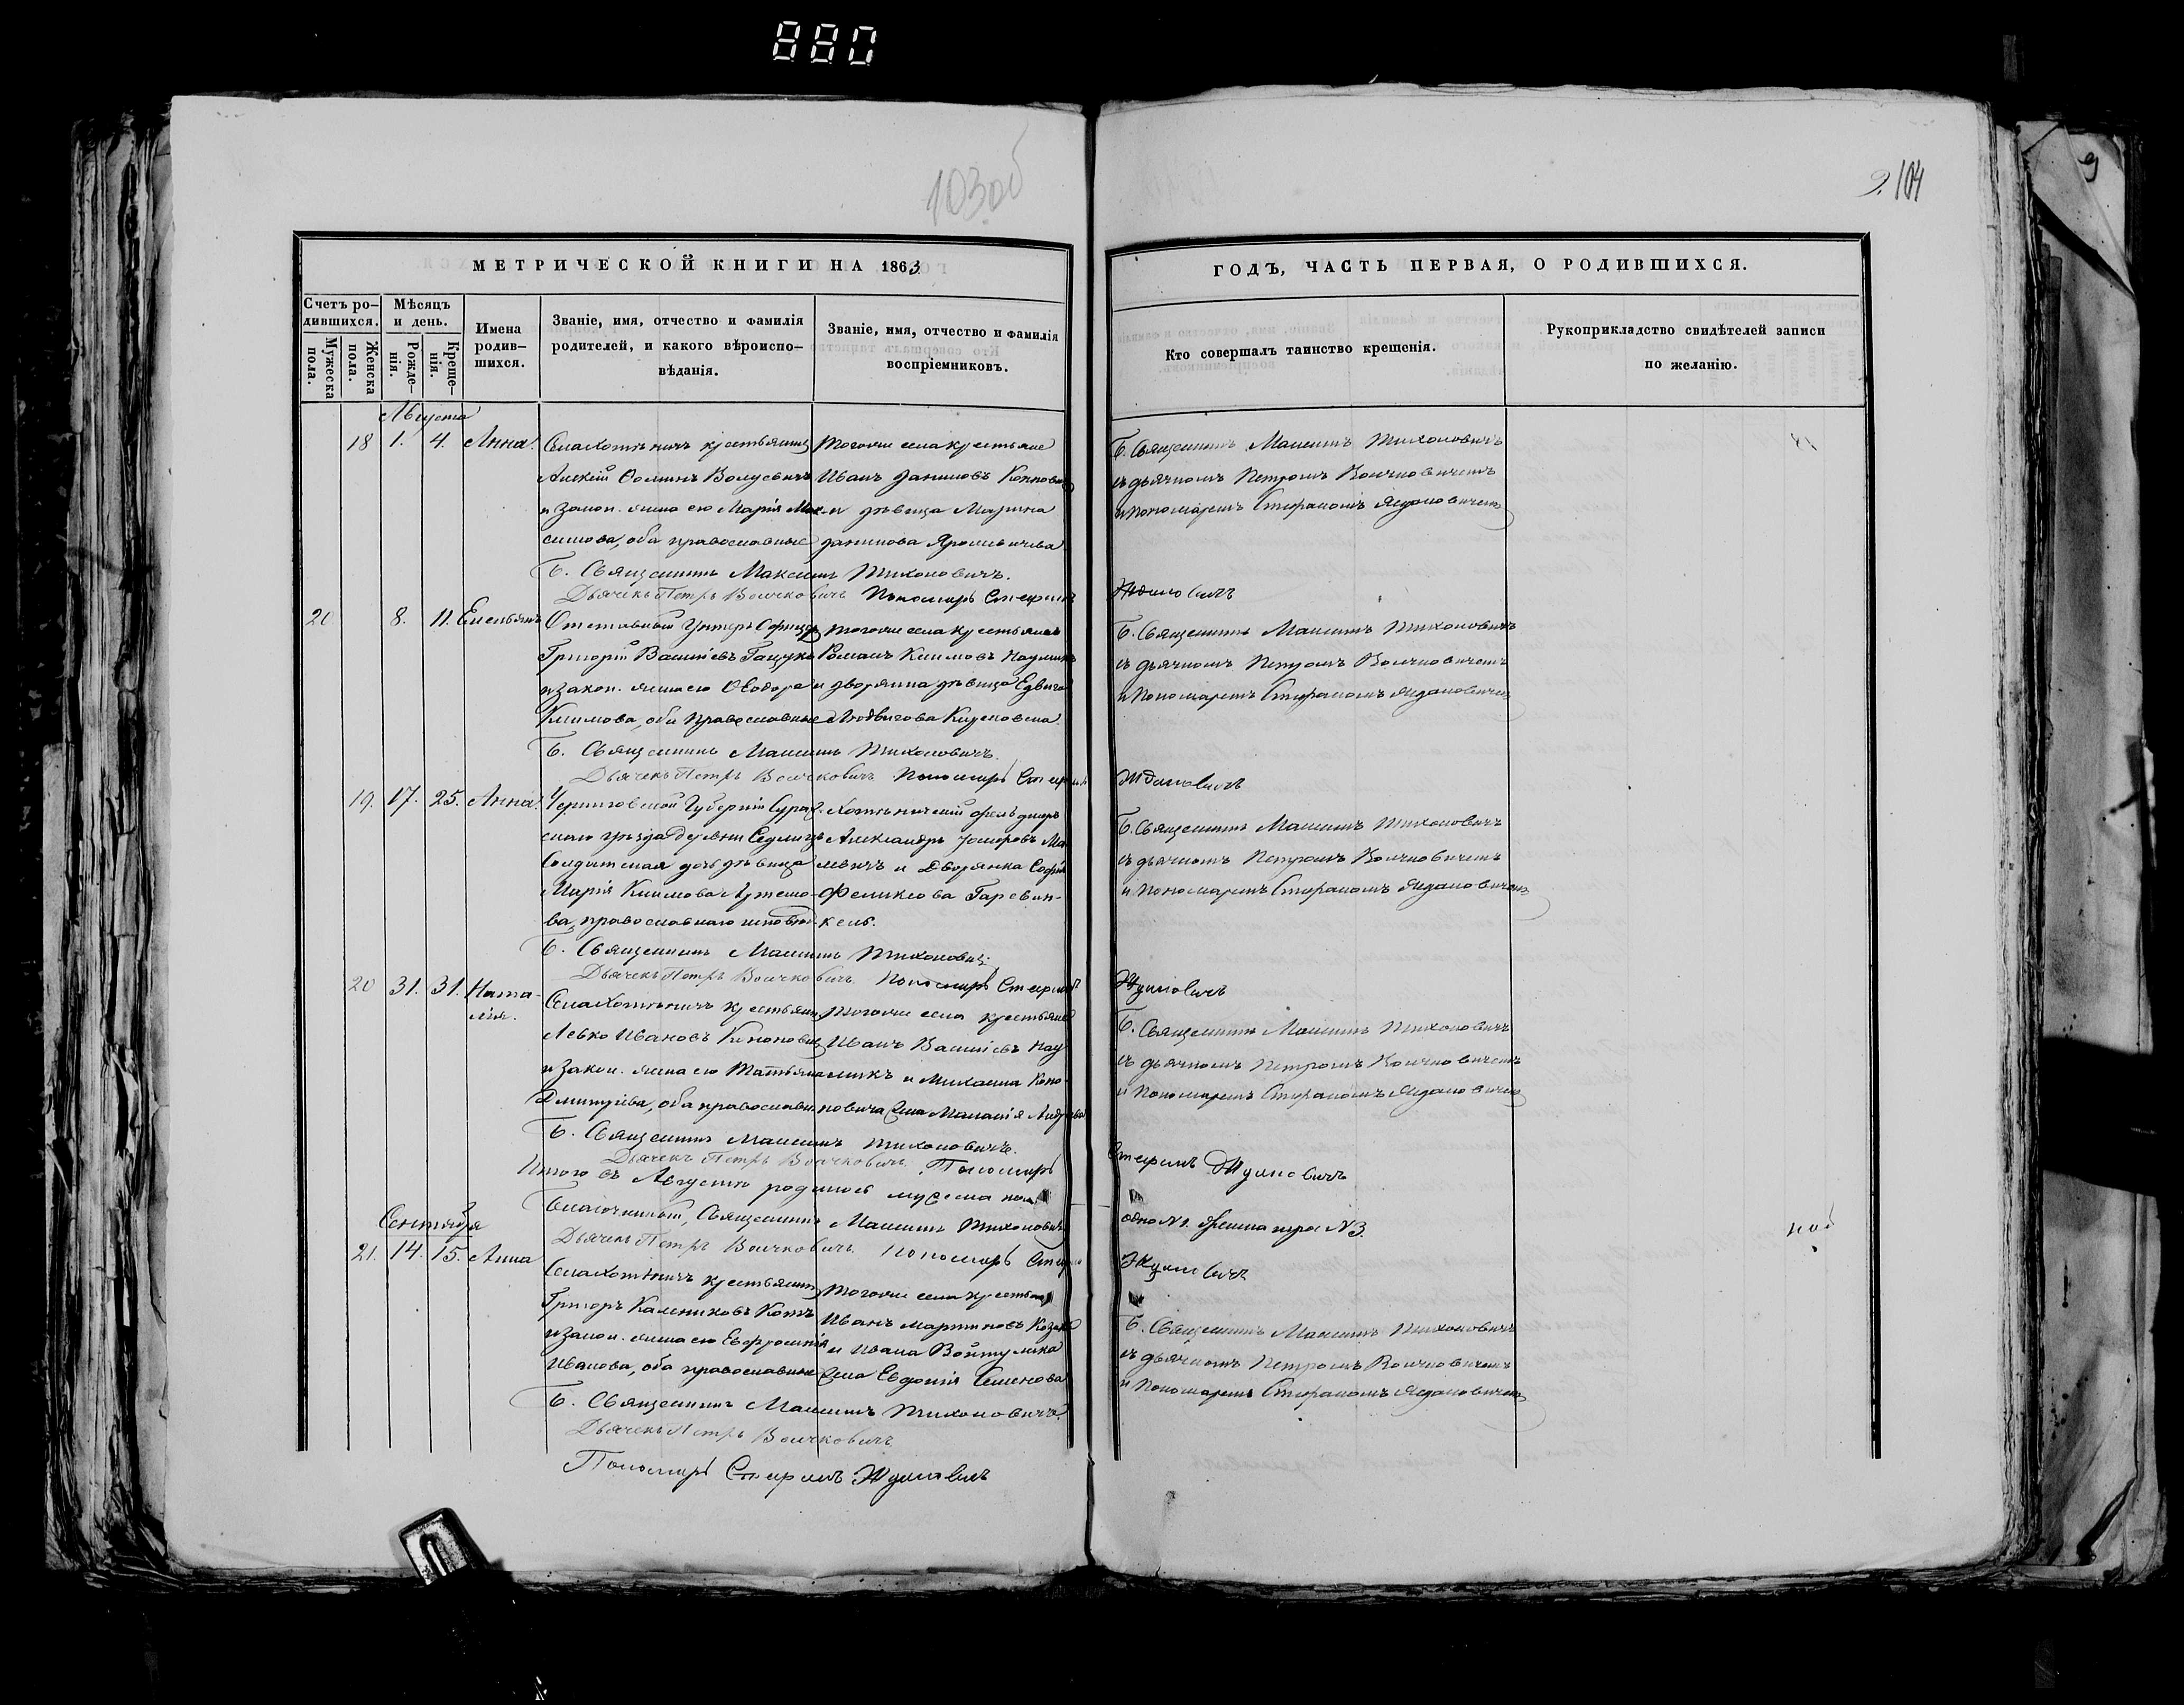 880
103 об
9. 104
9
МЕТРИЧЕСКОЙ КНИГИ НА 1863
ГОДЪ, ЧАСТЬ ПЕРВАЯ, О РОДИВШИХСЯ.
Счетъ ро-
дившихся.
Мужеска
пола.
Женска
пола.
Мѣсяцъ
и день.
Рожде-
нія.
Креще-
нія.
Имена
родив-
шихся.
Званіе, имя, отчество и фамилія
родителей, и какого вѣроиспо-
вѣданія.
Званіе, имя, отчество и фамилія
воспріемниковъ.
Кто совершалъ таинство крещенія.
Рукоприкладство свидѣтелей записи
по желанію.
Августа
18 1. 4. Анна.
Села Хотѣничъ крестьянинъ
Алексій Ѳоминъ
и закон. жена его Марія Мак-
симова, оба православные
тогоже села крестьяне
Иванъ Даниловъ
и дѣвица Марина
Данилова
Б. Священникъ Максимъ Тихоновичъ
съ дьячкомъ Петромъ Волчковичемъ
и Пономаремъ Стефаномъ Ждановичемъ
Б. Священникъ Максимъ Тихоновичъ.
Дьячекъ Петръ Волчковичъ Пономарь Стефанъ
Ждановичъ
20 8. 11. Емельянъ
Отставный Унтеръ Офицеръ
Григорій Василіевъ Гацуко
и закон. жена его Ѳеодора
Климова, оба православные
тогоже села крестьянинъ
Романъ Климовъ Наумикъ
и дворянка дѣвица Едвига
Людвигова
Б. Священникъ Максимъ Тихоновичъ
съ дьячкомъ Петромъ Волчковичемъ
и Пономаремъ Стефаномъ Ждановичемъ
Б. Священникъ Максимъ Тихоновичъ.
Дьячекъ Петръ Волчковичъ Пономарь Стефанъ
Ждановичъ
19. 17. 25. Анна.
Черниговской Губерніи Сураж-
скаго уѣзда деревни
Солдатская дочь дѣвица
Марія Климова
ва, православнаго исповѣд.
Хотѣничскій фельдшеръ
Александръ
и Дворянка Софія
Феликсова
Б. Священникъ Максимъ Тихоновичъ
съ дьячкомъ Петромъ Волчковичемъ
и Пономаремъ Стефаномъ Ждановичемъ
Б. Священникъ Максимъ Тихоновичъ
Дьячекъ Петръ Волчковичъ Пономарь Стефанъ
Ждановичъ
20 31. 31. Ната-
лія.
Села Хотѣничъ крестьянинъ
Левко Ивановъ Кононовичъ
и закон. жена его Татьяна
Дмитріева, оба православн.
тогоже села крестьяне
Иванъ Василіевъ Нау-
микъ и Михаила Коно-
новича жена Маланія Андреева
Б. Священникъ Максимъ Тихоновичъ
съ дьячкомъ Петромъ Волчковичемъ
и Пономаремъ Стефаномъ Ждановичемъ
Б. Священникъ Максимъ Тихоновичъ.
Дьячекъ Петръ Волчковичъ Пономарь
Стефанъ Ждановичъ
Итого въ Августѣ родилось мужеска пола
одно №1. женска три №3.
Благочинный, Священникъ Максимъ Тихоновичъ
Дьячекъ Петръ Волчковичъ Пономарь Стефанъ
Ждановичъ
Сентября
21. 14. 15. Анна
Села Хотѣничъ крестьянинъ
Григорій Калениковъ Котъ
и закон. жена его Евфросинія
Иванова, оба православные
тогоже села крестьяне
Иванъ Мартиновъ Козакъ
и Ивана
жена Евдокія Семенова
Б. Священникъ Максимъ Тихоновичъ
съ дьячкомъ Петромъ Волчковичемъ
и Пономаремъ Стефаномъ Ждановичемъ
Б. Священникъ Максимъ Тихоновичъ.
Дьячекъ Петръ Волчковичъ
Пономарь Стефанъ Ждановичъ